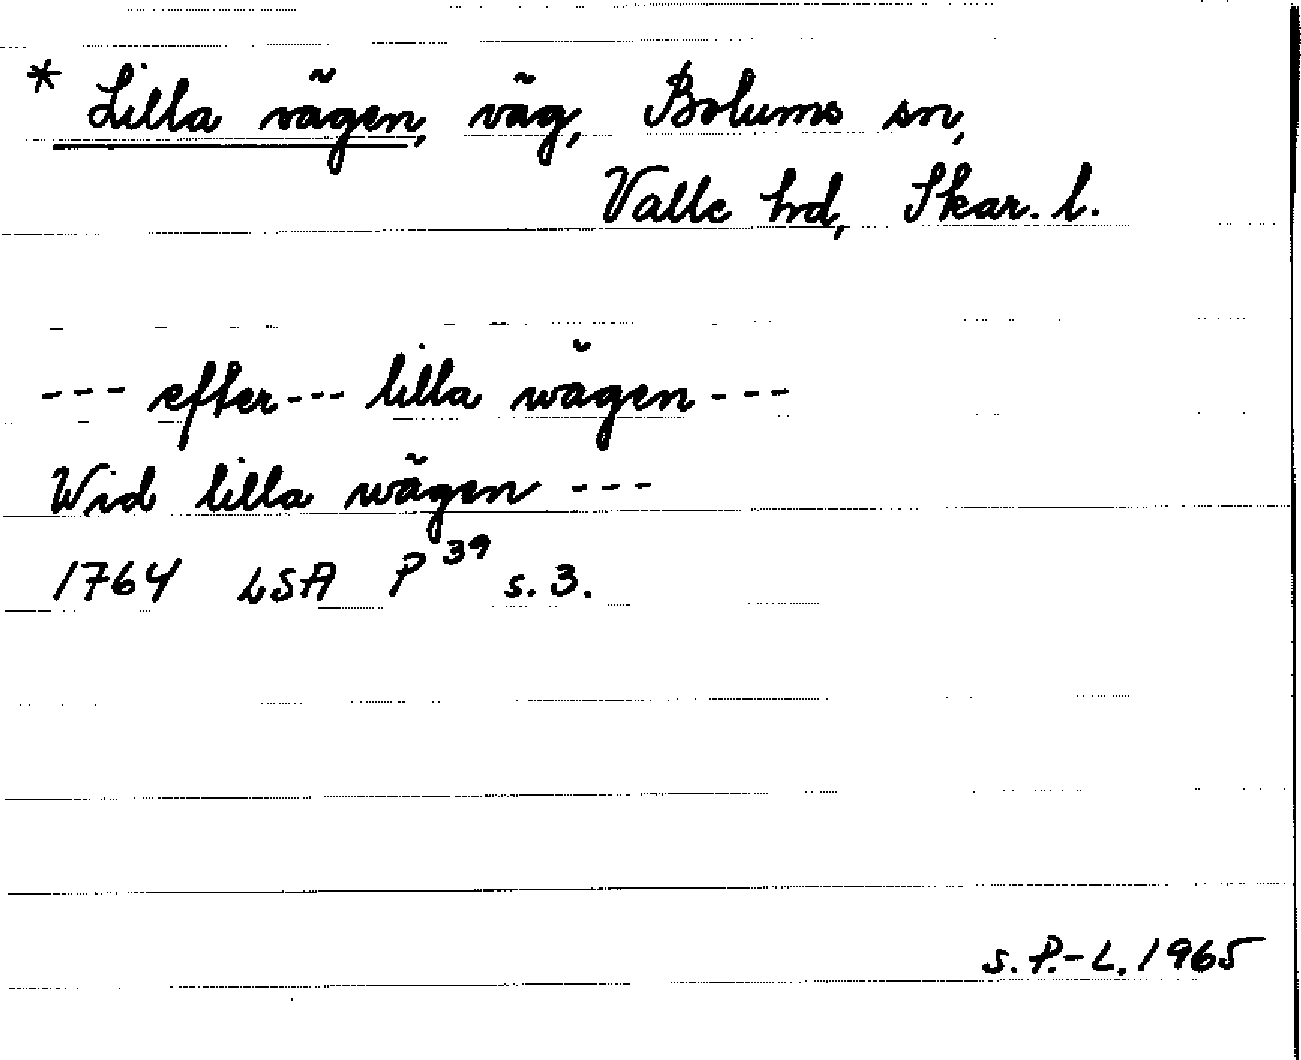 * Lilla vägen, väg, Bolums sn,
Valle hd, Skar. l.
--- efter --- lilla wägen ---
Wid lilla wägen ---
1764 LSA P 39 s. 3.
S. P.-L. 1965